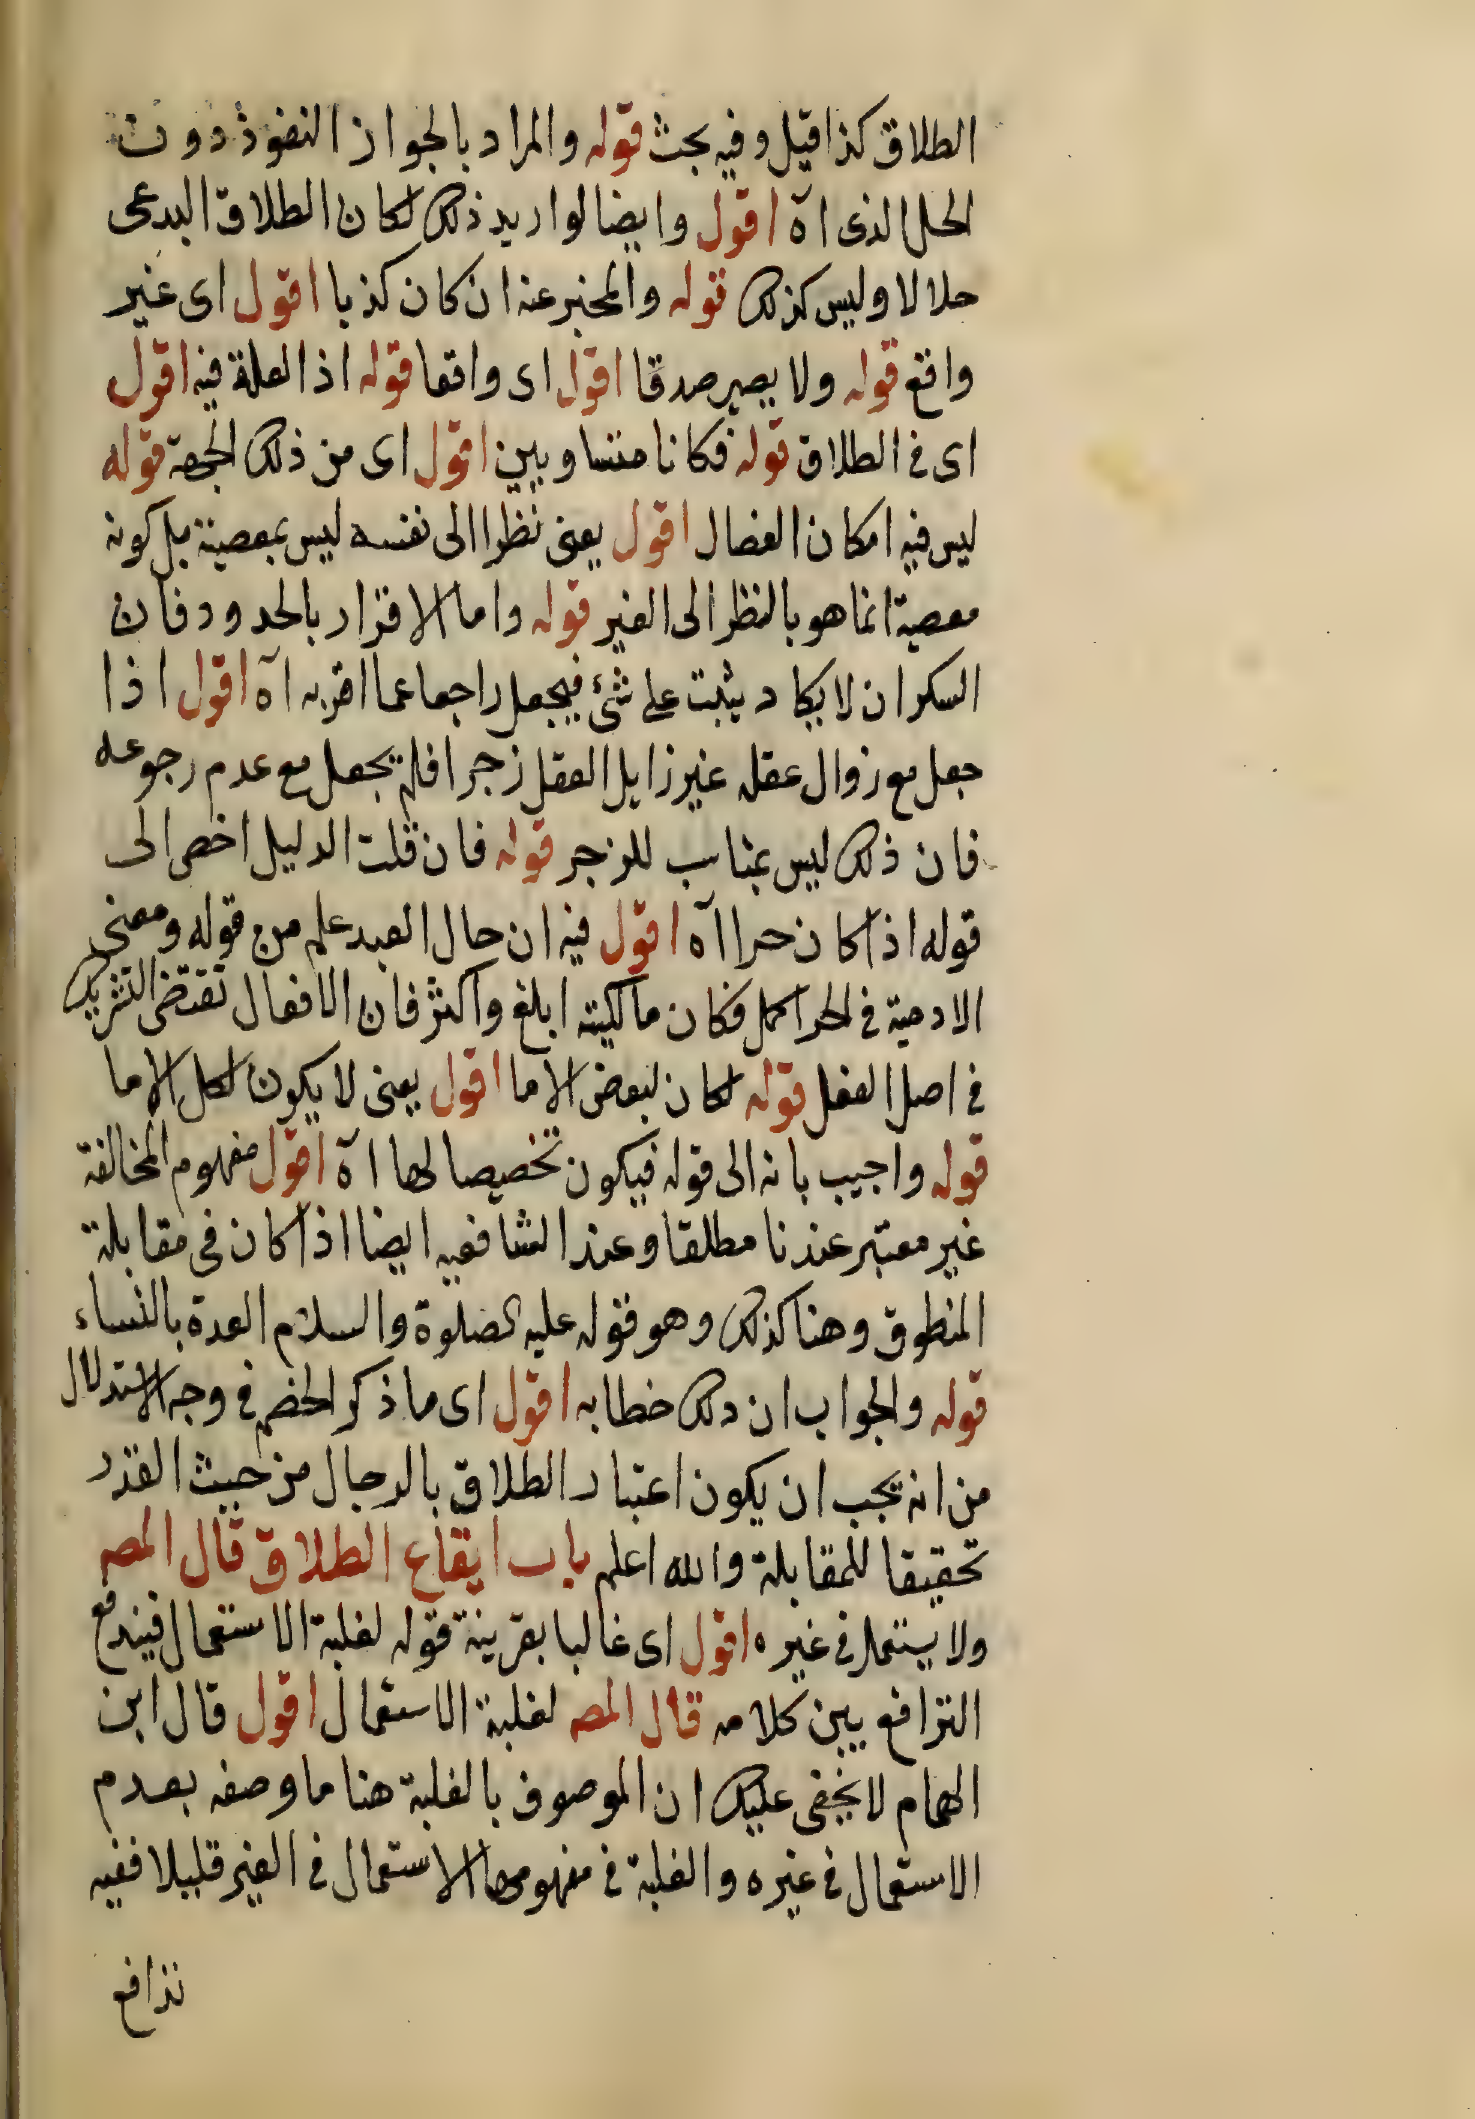 الطلاق كذا قيل وفيه بحث قوله والمراد بالجواز النفوذ دون
الحل الذى اه اقول وايضا لو اريد ذلك لكان الطلاق البدعى
حلالا وليس كذلك قوله والمخبر عنه ان كان كذبا اقول اى غير
واقع قوله ولا يصير صدقا اقول اى واقعا قوله اذ العلة فيه اقول
اى فى الطلاق قوله فكانا متساويين اقول اى من ذلك الجهة قوله
ليس فيه امكان انفصال اقول يعنى نظرا الى نفسه ليس بمعصية بل كونه
معصية انما هو بالنظر الى الغير قوله واما الاقرار بالحدود فان
السكران لا يكاد يثبت على شئ فيجعل راجعا عما اقر به اه اقول اذا
جعل مع زوال عقله غير زايل العقل زجرا فلم يجعل مع عدم رجوعه
فان ذلك ليس بمناسب للزجر قوله فان قلت الدليل اخص الى
قوله اذا كان حرا اه اقول فيه ان حال العبد علم من قوله ومعنى
الادمية فى الحر اكمل فكان مالكيته ابلغ واكثر فان الافعال تقتضى التشريك
فى اصل الفعل قوله لكان لبعض الاما اقول يعنى لا يكون لكل الاما
قوله واجيب بانه الى قوله فيكون تخصيصا لها اه اقول مفهوم المخالفة
غير معتبر عندنا مطلقا وعند الشافعيه ايضا اذا كان فى مقابلة
المنطوق وهنا كذلك وهو قوله عليه الصلوة والسلام العدة بالنساء
قوله والجواب ان دلك خطابه اقول اى ما ذكر الخصم فى وجه الاستدلال
من انه يجب ان يكون اعتبار الطلاق بالرجال من حيث القدر
تحقيقا للمقابلة والله اعلم باب ايقاع الطلاق قال المصه
ولا يستعمل فى غيره اقول اى غالبا بقرينة قوله لغلبة الاستعمال فيندفع
التزافع بين كلامه قال المصه لغلبة الاستعمال اقول قال ابن
الهمام لا يخفى عليك ان الموصوف بالغلبة هنا ما وصفه بعدم
الاستعمال فى غيره والغلبة فى مفهومها الاستعمال فى الغير قليلا ففيه
تذافع